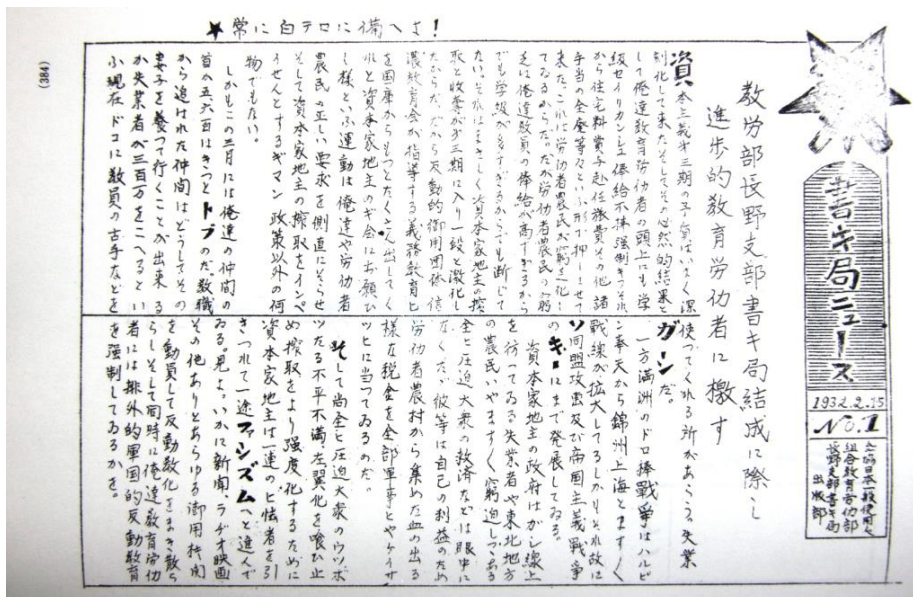 ★常に白テロに備へよ！
書キ局ニュース
1932.2.25
No.1
全協日本一般使用人
組合教育労仂部
長野支部書キ局
出版部
教労部長野支部書キ局結成に際し
進歩的教育労仂者に檄す
資本主義第三期の矛盾はいよいよ深
刻化して来たそしてその必然的結果と
して俺達教育労仂者の頭上にも学
級セイリカンシュ俸給不拂強制キフそれ
から住宅料賞与赴任旅費その他諸
手当の全廃等々といふ形で押しよせて
来た。これは労仂者農民が窮乏化し
てゐるからだ。だが労仂者農民の窮
乏は俺達教員の俸給が高すぎるから
でも学級が多すぎるからでも断じて
ない。それはまさしく資本家地主の搾
取と収奪が第三期に入り一段と激化し
たからだ。だから反動的御用団体信
濃教育会が指導する義務教育ヒ
を国庫からもつとたくさん出してく
れと資本家地主のギ会にお願ひ
し様といふ運動は俺達や労仂者
農民の正しい要求を側直にそらせ
そして資本家地主の搾取をインペ
イせんとするギマン政策以外の何
物でもない。
しかもこの三月には俺達の仲間の
首が五六百はきつとトブのだ教職
から追はれた仲間はどうしてその
妻子を養つて行くことが出来る
か失業者が三百万をこへるとい
ふ現在ドコに教員の古手などを
使つてくれる所があらう。失業
ガーンだ。
一方満洲のドロ棒戦争はハルビ
ン奉天から錦州上海とますます
戦線が拡大してゐるしかもそれ故に
ソ同盟攻撃及び帝国主義戦争
のキキにまで発展してゐる。
資本家地主の政府はガシ線上
を彷つてゐる失業者や東北地方
の農民いやますます窮迫しつゝある
全ヒ圧迫大衆の救済などは眼中に
なくたゞ彼等は自己の利益のため
労仂者農村から集めた血の出る
様な税金を全部軍事ヒやケイサ
ツヒに当つてゐるのだ。
そして尚全ヒ圧迫大衆のウツボ
ツたる不平不満、左翼化を喰ひ止
め搾取をより強度化するために
資本家地主は一連のヒ怯者を引
きつれて一途ファシズムへと進んで
ゐる。見よ。いかに新聞、ラヂオ映画
その他ありとあらゆる御用機関
を動員して反動教化をまき散ら
らしそして同時に俺達教育労仂
者には排外的軍国的反動教育
を強制してゐるかを。
(384)